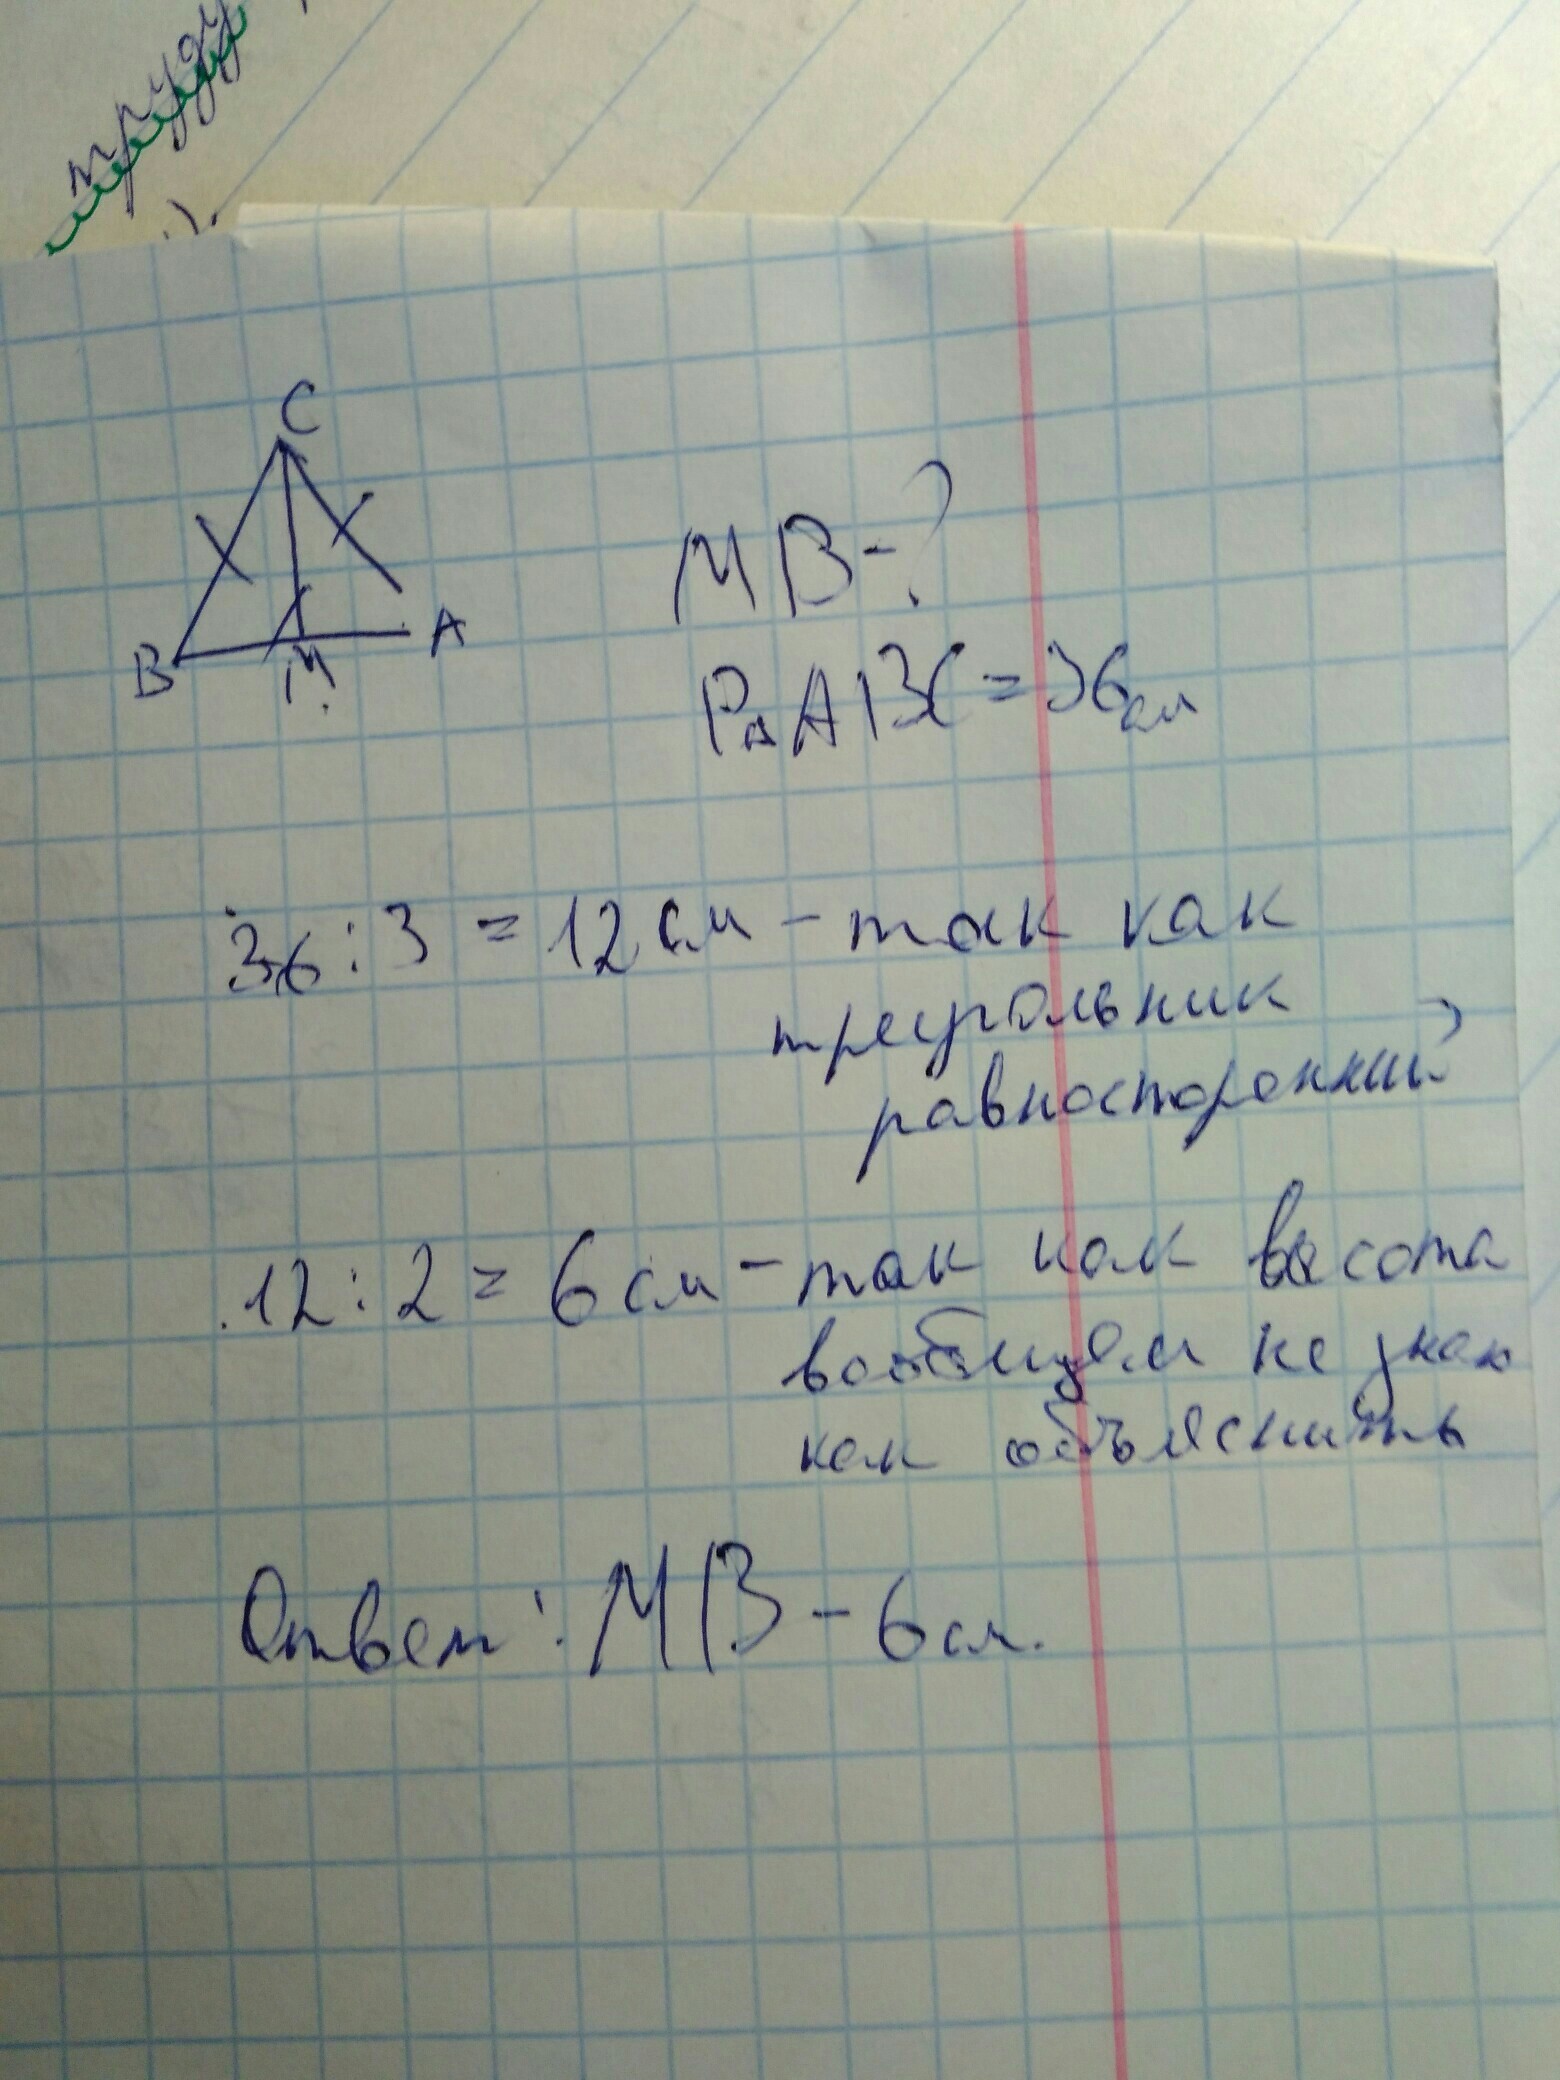 пруду
).
C
B
M
A
MB-?
P∆ABC=36см
36:3=12см-так как
треугольник
равносторонний
12:2=6см-так как высота
вообщем не знаю
как объяснить
Ответ: MB-6см.